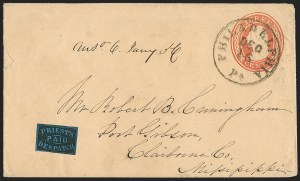 PHILADELPHIA
DEC
Pa
PRIEST'S
PAID
DESPATCH
Mr Robert B. Cunningham
Port Gibson,
Claiborne Co.
Missippi